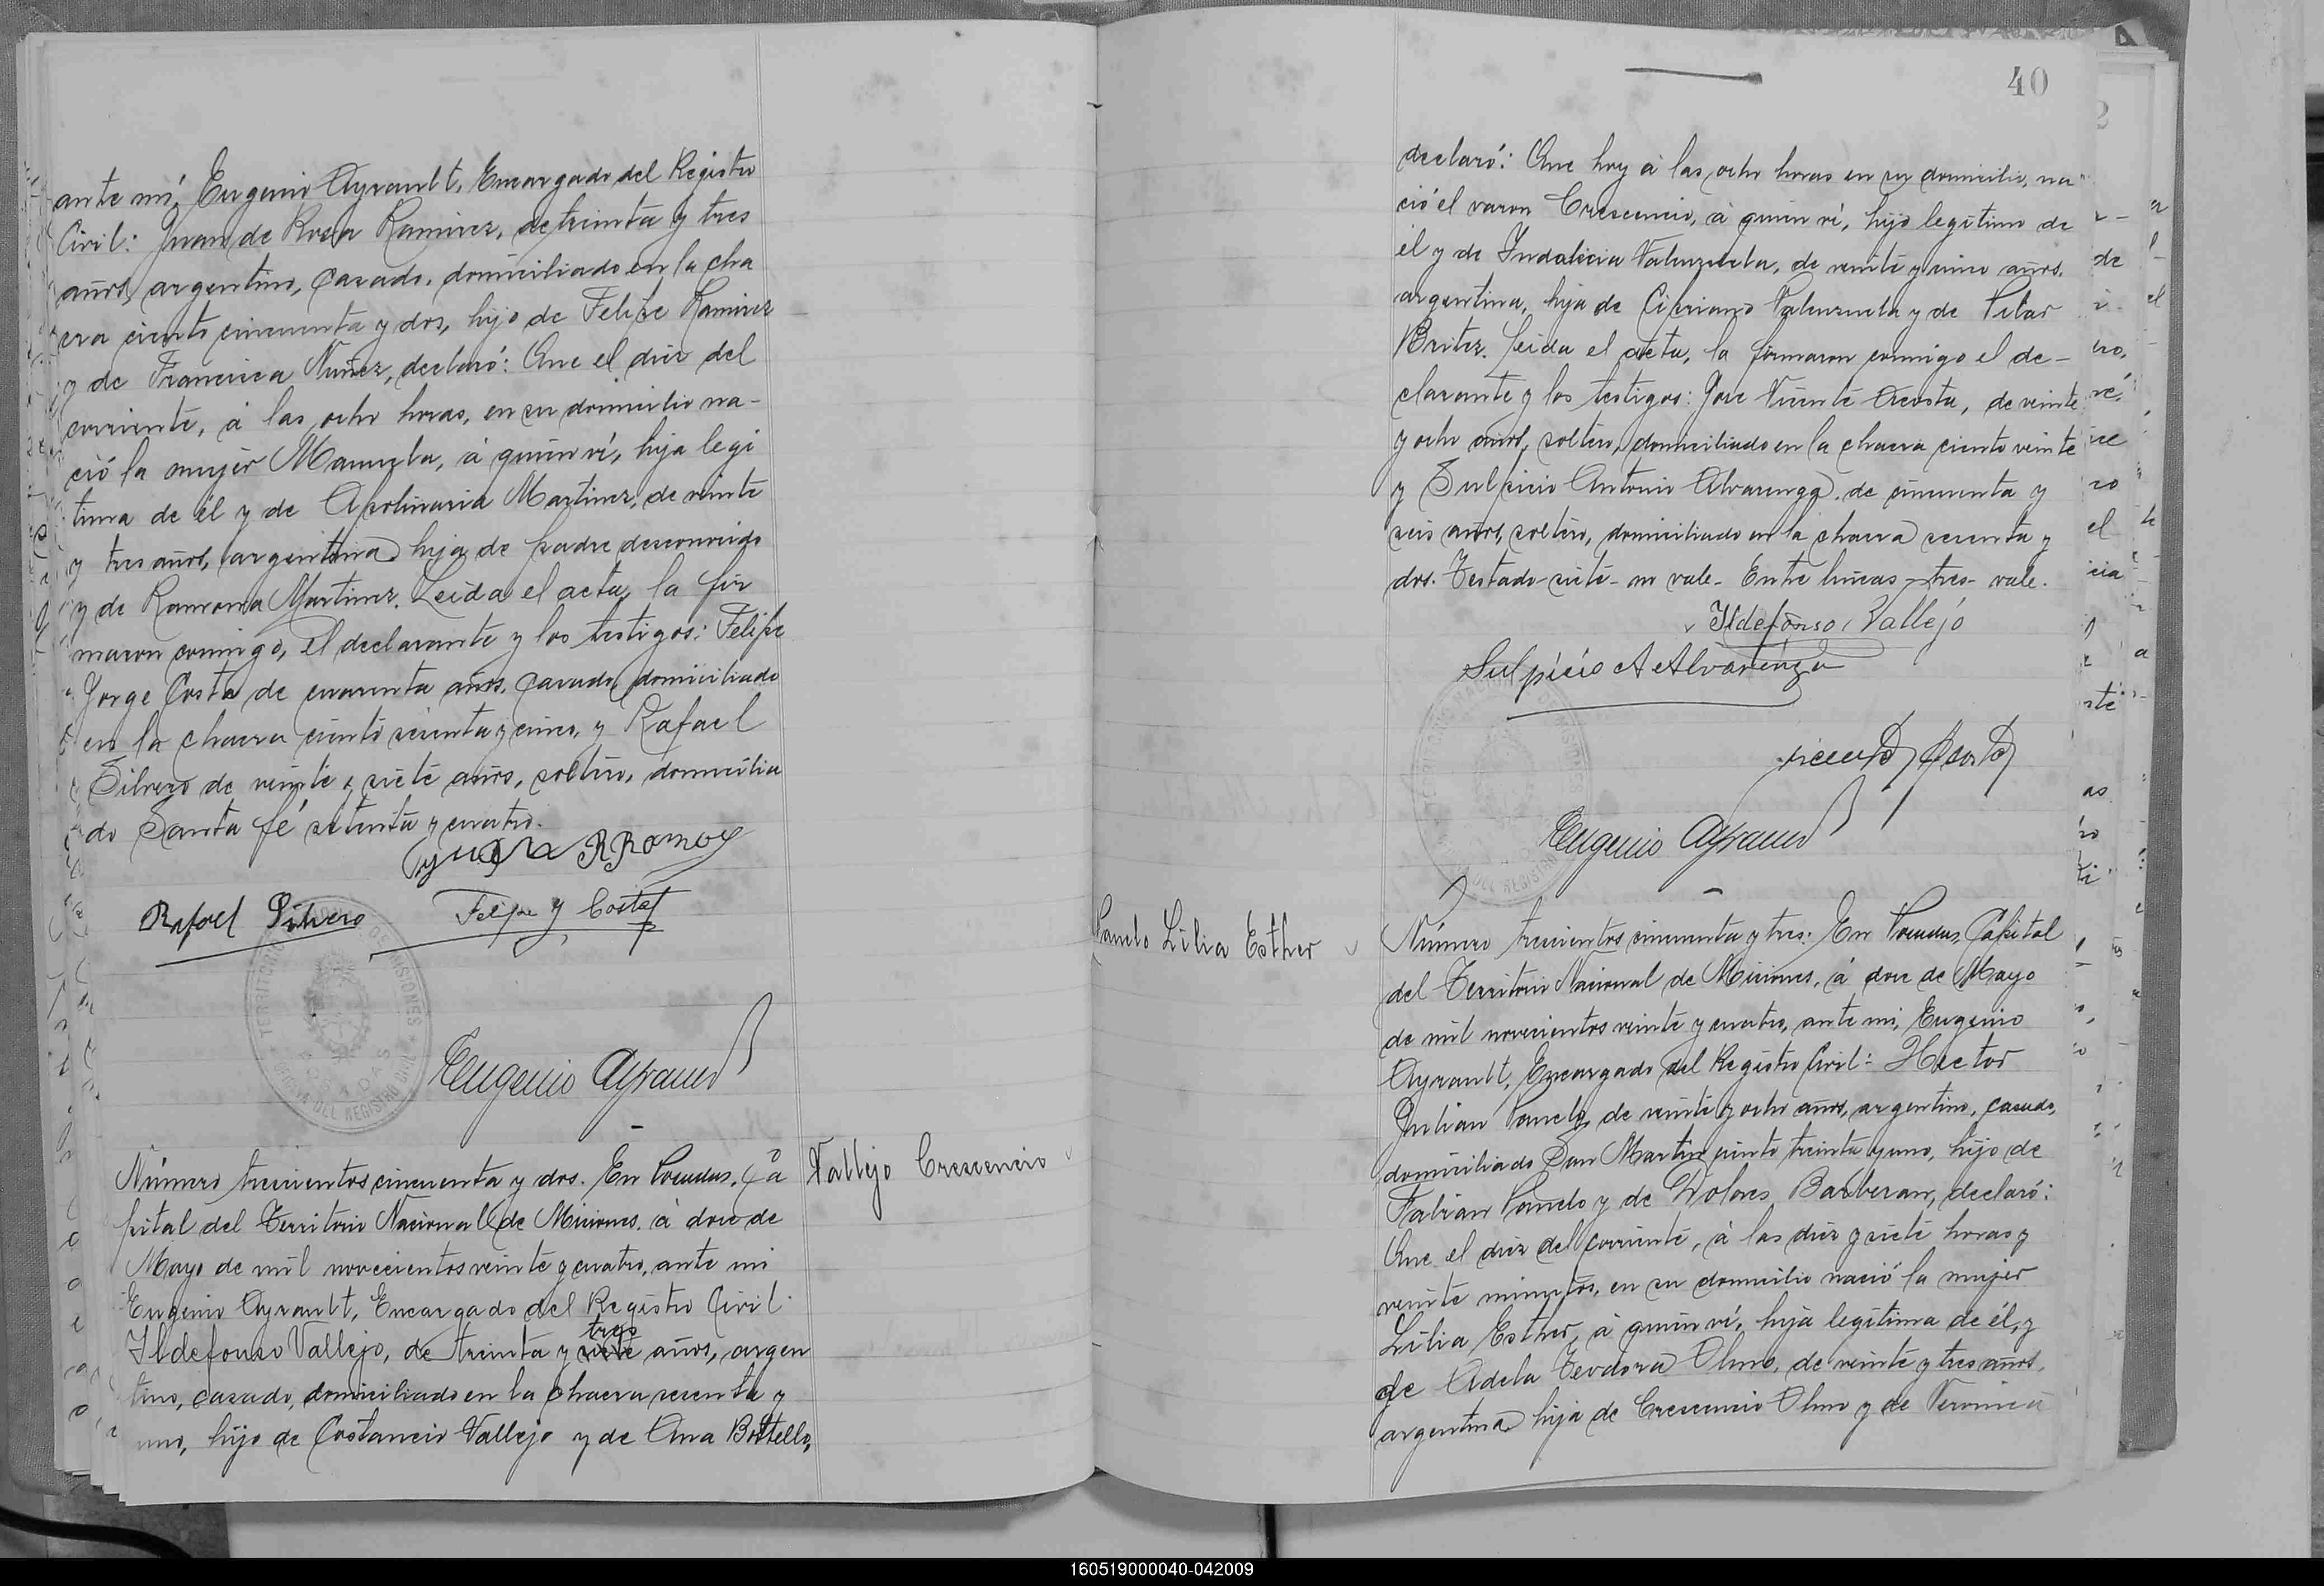 ante mí, Eugenio Ayrault, Encargado del Registro
Civil: Juan de Rosa Ramirez, de treinta y tres
años, argentino, casado, domiciliado en la cha
cra ciento cincuenta y dos, hijo de Felipe Ramirez
y de Francisca Nuñez, declaró: Que el diez del
corriente, á las ocho horas, en su domicilio na-
ció la mujer Manuela, á quien ví, hija legi
tima de él y de Apolinaria Martinez, de veinte
y tres años, argentina, hija de padre desconocido
y de Ramona Martinez. Leida el acta, la fir
maron conmigo, el declarante y los testigos: Felipe
Jorge Costa de cuarenta años, casado, domiciliado
en la chacra ciento sesenta y cinco, y Rafael
Silvero de veinte y siete años, soltero, domicilia
do Santa fé setenta y cuatro.
Rafael Silvero
Felipe J Costa
TERRITORIO DE MISIONES
POSADAS
OFICINA DEL REGISTRO CIVIL
Eugenio Ayrault
Número trescientos cincuenta y dos. En Posadas, Ca
pital del Territorio Nacional de Misiones, á doce de
Mayo de mil novecientos veinte y cuatro, ante mi
Eugenio Ayrault, Encargado del Registro Civil:
tres
Ildefonso Vallejo, de treinta y siete años, argen
tino, casado, domiciliado en la chacra sesenta y
uno, hijo de Costancio Vallejo y de Ana Bottello,
Vallejo Crescencio
40
declaró: Que hoy á las ocho horas en su domicilio, na"
ció el varon Crescencio, á quien ví, hijo legítimo de
él y de Indalecia Valenzuela, de veinte y cinco años,
argentina, hija de Cipriano Valenzuela y de Pilar
Britez. Leida el acta, la firmaron conmigo el de-
clarante y los testigos: José Vicente Acosta, de veinte
y ocho años, soltero, domiciliado en la chacra ciento veinte
y Sulpicio Antonio Alvarenga, de cincuenta y
seis años, soltero, domiciliado en la chacra sesenta y
dos. Testado-siete-no vale- Entre lineas-tres-vale.
Ildefonso Vallejo
Sulpicio A Alvarenga
Vicente Acosta
Eugenio Ayrault
Panelo Lilia Esther
Número trescientos cincuenta y tres: En Posadas, Capital
del Territorio Nacional de Misiones, á doce de Mayo
de mil novecientos veinte y cuatro, ante mi, Eugenio
Ayrault, Encargado del Registro Civil: Hector
Julian Panelo, de veinte y ocho años, argentino, casado,
domiciliado San Martin ciento treinta y uno, hijo de
Fabian Panelo y de Dolores Barberan, declaró:
Que el diez del corriente, á las diez y siete horas y
veinte minutos, en su domicilio nació la mujer
Lilia Esther, á quien ví, hija legítima de él, y
de Adela Teodora Olmo, de veinte y tres años,
argentina, hija de Crescencio Olmo y de Veronica
160519000040-042009